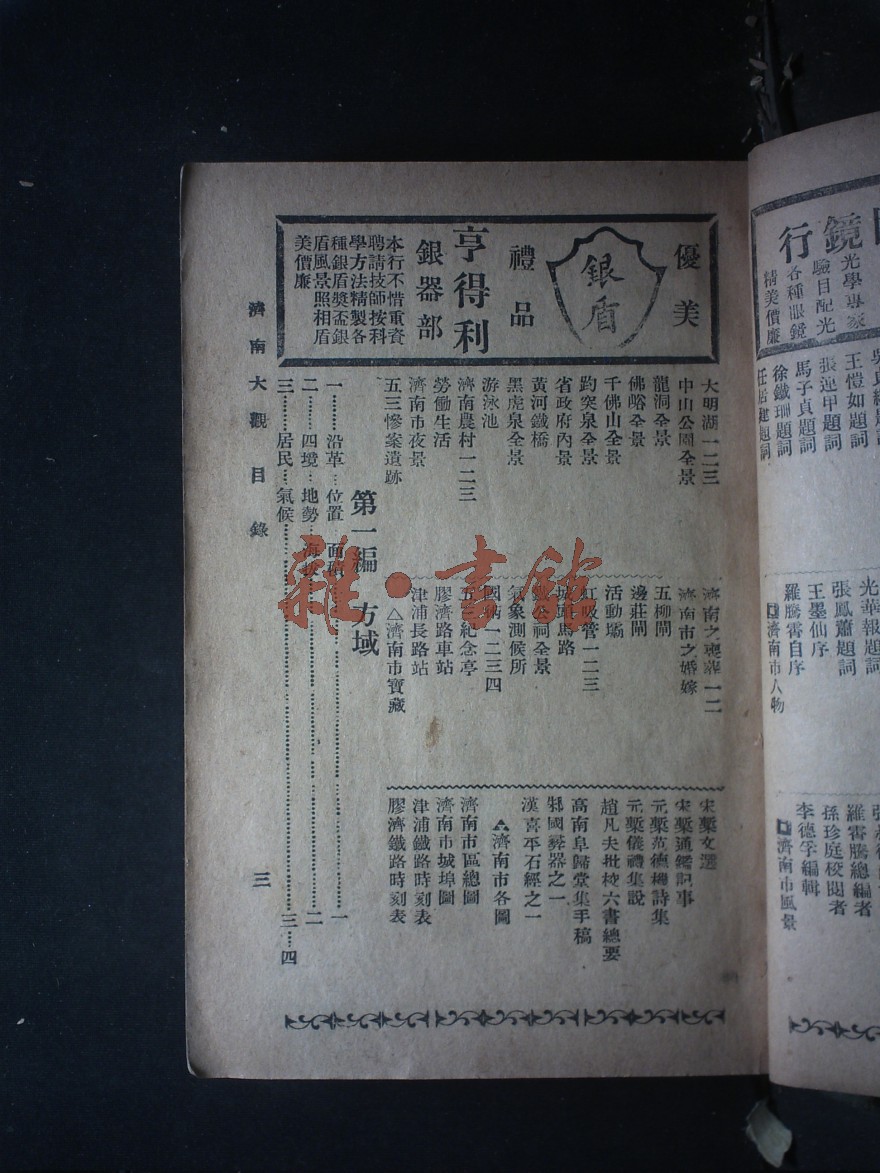 優美
銀盾
禮品
亨得利
銀器部
本行不惜重資
聘請技師按科
學方法精製各
種銀盾獎盃銀
盾風景照相盾
美價廉
大明湖一二三
中山公園全景
龍洞全景
佛峪全景
千佛山全景
趵突泉全景
省政府內景
黃河鐵橋
黑虎泉全景
游泳池
濟南農村一二三
勞働生活
濟南市夜景
五三慘案遺跡
濟南之喪葬一二
濟南市之婚嫁
五柳閘
邊莊閘
活動壩
虹吸管一二三
城頭馬路
鐵公祠全景
氣象測候所
國術一二三四
五三紀念亭
膠濟路車站
津浦長路站
△濟南市寶藏
宋槧文選
宋槧通鑑記事
元槧范德機詩集
元槧儀禮集說
趙凡夫批校六書總要
高南阜歸堂集手稿
邾國彝器之一
漢喜平石經之一
△濟南市各圖
濟南市區總圖
濟南市城埠圖
津浦鐵路時刻表
膠濟鐵路時刻表
第一編 方域
一……沿革…位置…面積……一
二……四境…地勢…海拔……二
三……居民…氣候……三…四
濟南大觀目錄
三
鏡行
光學專家
驗目配光
各種眼鏡
精美價廉
王愷如題詞
張蓮甲題詞
馬子貞題詞
徐鐵珊題詞
任居建題詞
光華報題詞
張鳳蕭題詞
王墨仙序
羅騰霄自序
濟南市人物
羅霄騰總編者
孫珍庭校閱者
李德孚編輯
濟南市風景
雜·書館